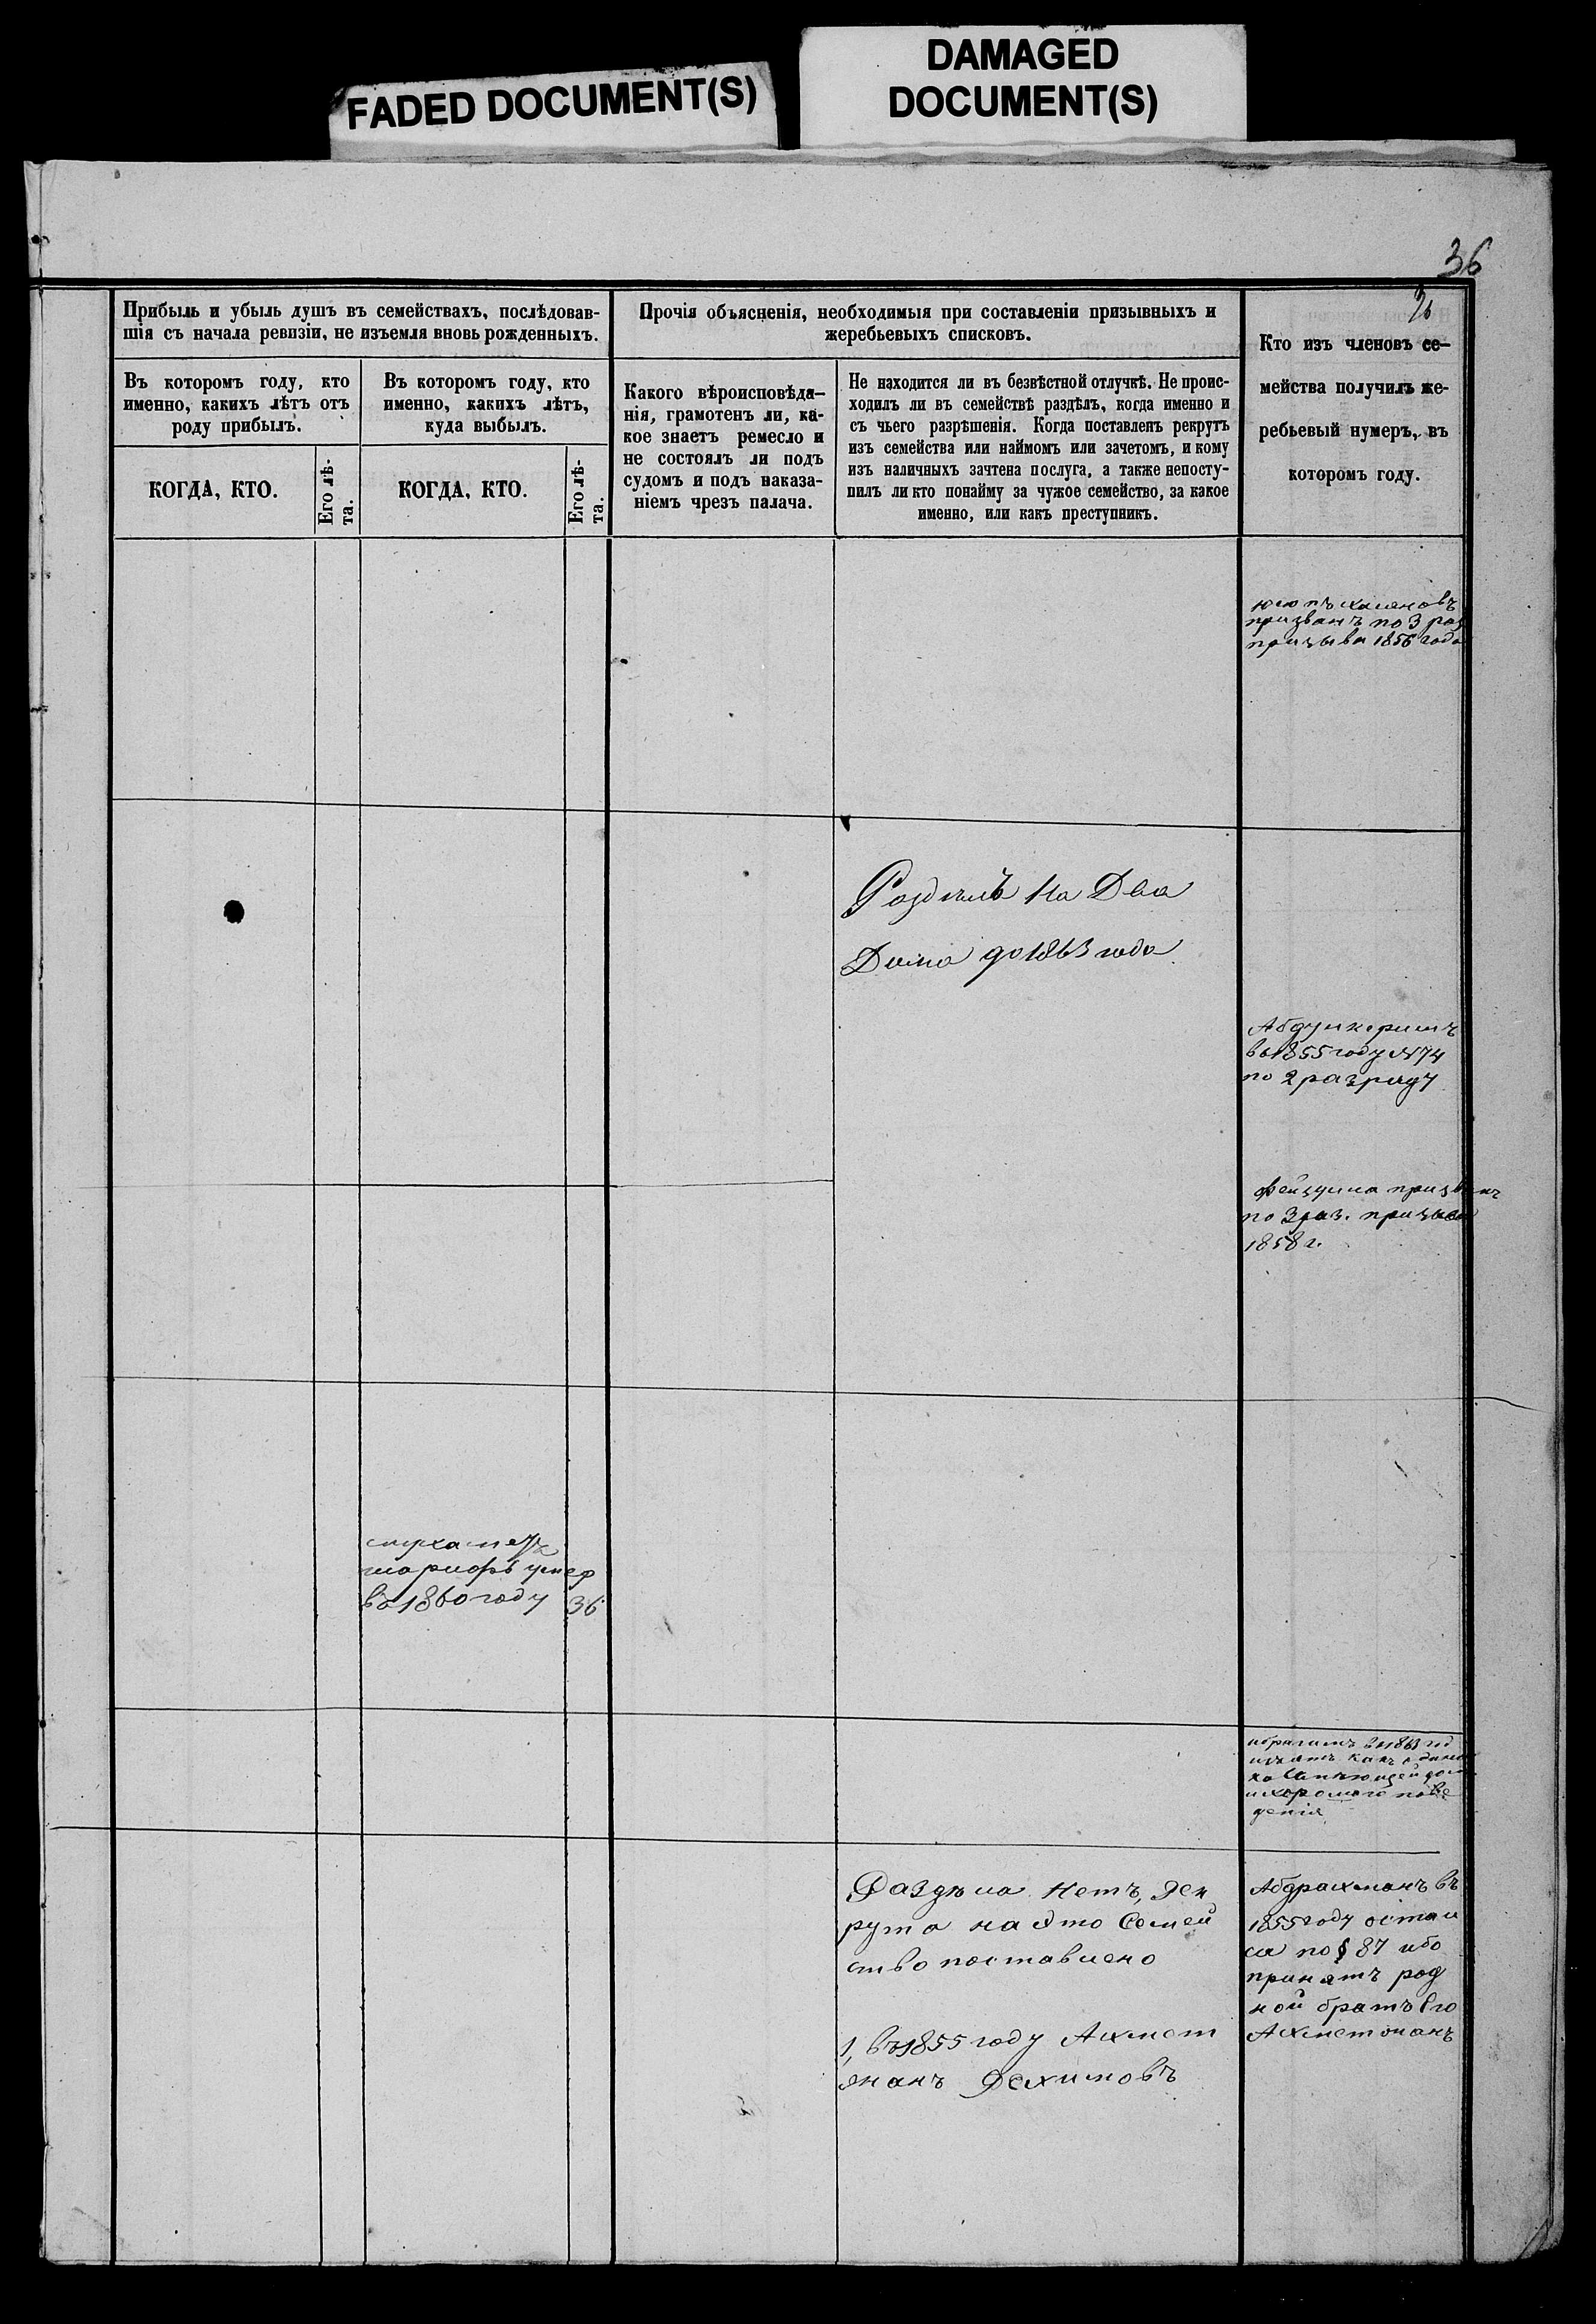 FADED DOCUMENT(S)
DAMAGED
DOCUMENT(S)
36
Прибыль и убыль душъ въ семействахъ, послѣдовав-
шія съ начала ревизіи, не изъемля вновь рожденныхъ.
Въ которомъ году, кто
именно, какихъ лѣтъ отъ
роду прибылъ.
КОГДА, КТО.
Его лѣ-
та.
Въ которомъ году, кто
именно, какихъ лѣтъ,
куда выбылъ.
КОГДА, КТО.
Его лѣ-
та.
Прочія объясненія, необходимыя при составленіи призывныхъ и
жеребьевыхъ списковъ.
Какого вѣроисповѣда-
нія, грамотенъ ли, ка-
кое знаетъ ремесло и
не состоялъ ли подъ
судомъ и подъ наказа-
ніемъ чрезъ палача.
Не находится ли въ безвѣстной отлучкѣ. Не проис-
ходилъ ли въ семействѣ раздѣлъ, когда именно и
съ чьего разрѣшенія. Когда поставленъ рекрутъ
изъ семейства или наймомъ или зачетомъ, и кому
изъ наличныхъ зачтена послуга, а также непосту-
пилъ ли кто понайму за чужое семейство, за какое
именно, или какъ преступникъ.
Кто изъ членовъ се-
мейства получилъ же-
ребьевый нумеръ, въ
которомъ году.
призванъ по 3 раз
призыва 1856 года
Роздѣлъ На Два
Дома до 1863 года
Абдулкеримъ
въ 1855 году № 74
по 2 разряду
призванъ
по 3 раз. призыва
1858 г.
мухаметъ
шарифъ умер
въ 1860 году 36
ибрагимъ въ 1863 год
изъятъ какъ
и хорошаго пове
денія
Раздѣла Нетъ, Рек
рута на Это Семей
ство поставлено
1, въ 1855 году Ахмет
жанъ Рехимовъ
Абдрахманъ въ
1855 году остал
ся по § 87 ибо
принятъ род
ной братъ Его
Ахметжанъ